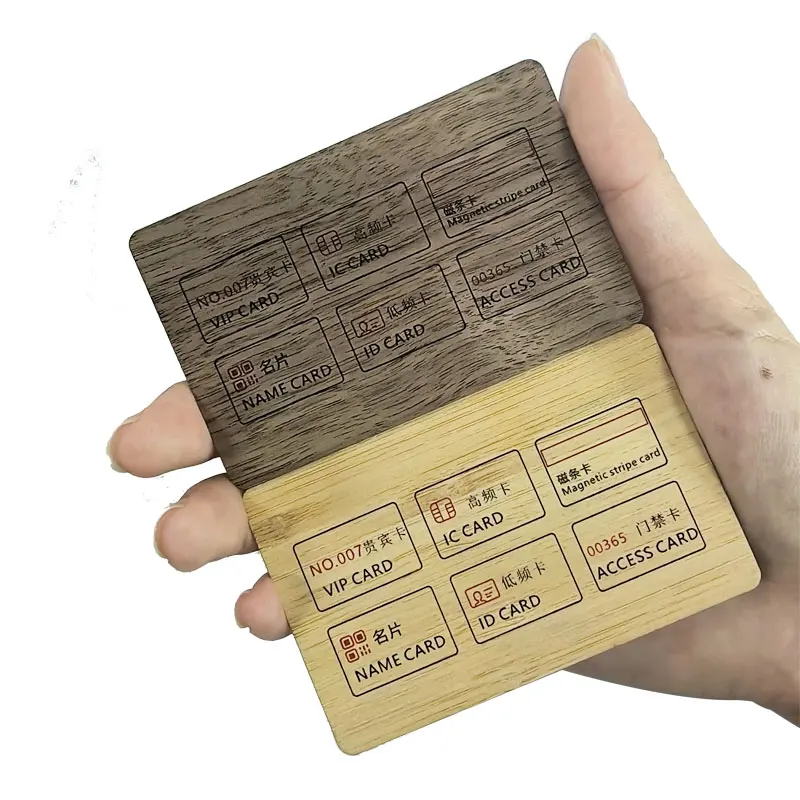 NO.007贵宾卡
VIP CARD
高频卡
IC CARD
磁条卡
Magnetic stripe card
名片
NAME CARD
低频卡
ID CARD
00365 门禁卡
ACCESS CARD
NO.007贵宾卡
VIP CARD
高频卡
IC CARD
磁条卡
Magnetic stripe card
名片
NAME CARD
低频卡
ID CARD
00365 门禁卡
ACCESS CARD